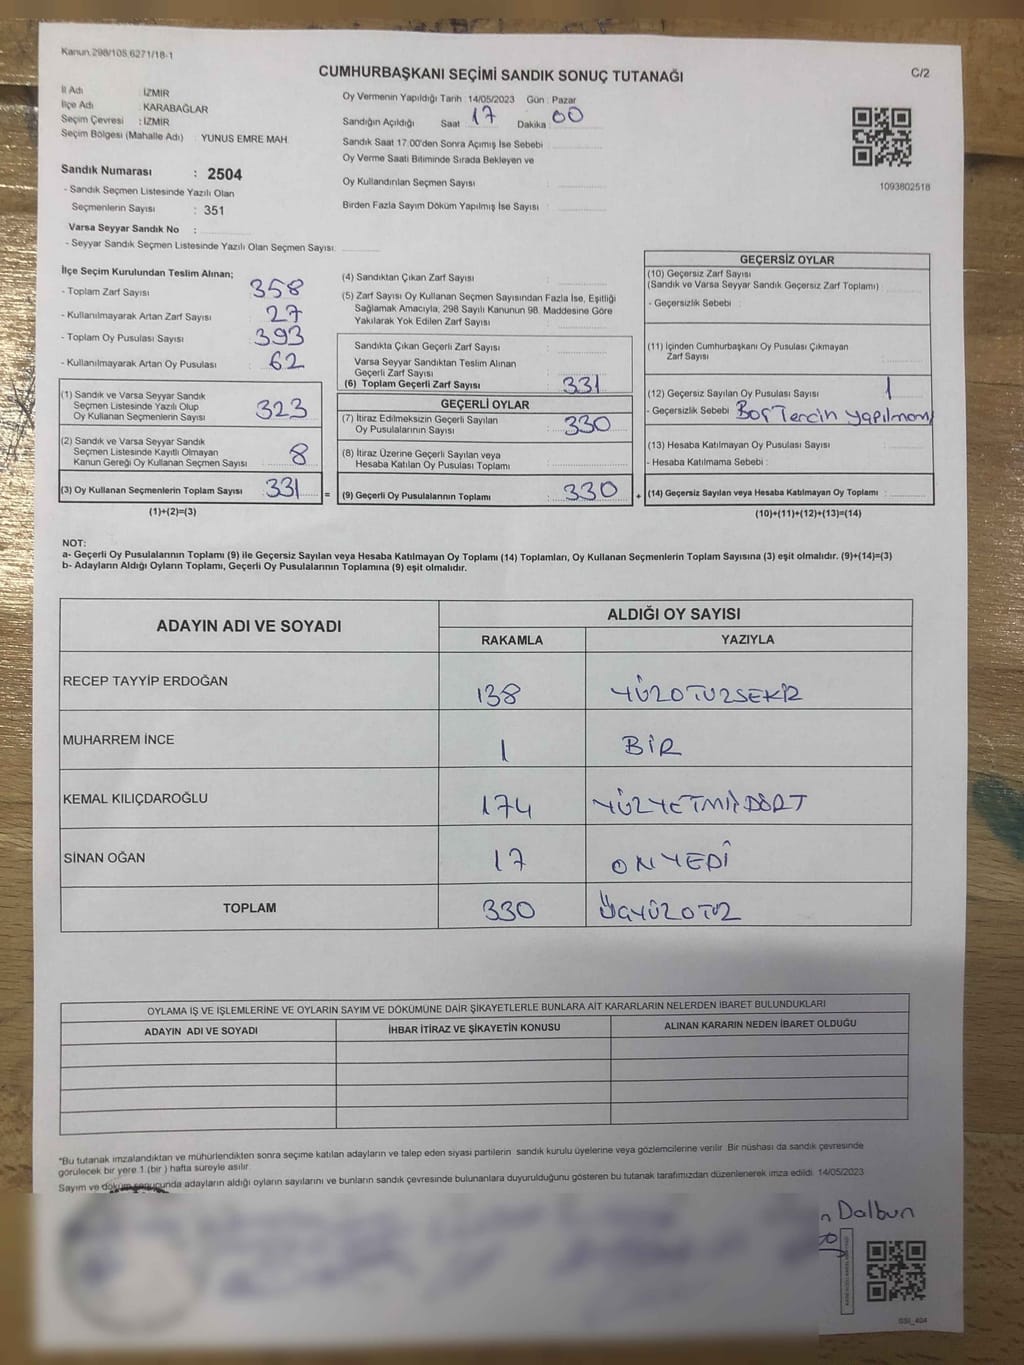 Kanun.298/105,6271/18-1
CUMHURBAŞKANI SEÇİMİ SANDIK SONUÇ TUTANAĞI
C/2
İl Adı : İZMİR
İlçe Adı : KARABAĞLAR
Seçim Çevresi : İZMİR
Seçim Bölgesi (Mahalle Adı) YUNUS EMRE MAH.
Sandık Numarası : 2504
- Sandık Seçmen Listesinde Yazılı Olan
Seçmenlerin Sayısı : 351
Varsa Seyyar Sandık No :
- Seyyar Sandık Seçmen Listesinde Yazılı Olan Seçmen Sayısı:
Oy Vermenin Yapıldığı Tarih : 14/05/2023 Gün : Pazar
Sandığın Açıldığı Saat 17 Dakika 00
Sandık Saat 17.00'den Sonra Açımış İse Sebebi :
Oy Verme Saati Bitiminde Sırada Bekleyen ve
Oy Kullandırılan Seçmen Sayısı :
Birden Fazla Sayım Döküm Yapılmış İse Sayısı :
1093802518
İlçe Seçim Kurulundan Teslim Alınan;
- Toplam Zarf Sayısı : 358
- Kullanılmayarak Artan Zarf Sayısı : 27
- Toplam Oy Pusulası Sayısı : 393
- Kullanılmayarak Artan Oy Pusulası : 62
(1) Sandık ve Varsa Seyyar Sandık
Seçmen Listesinde Yazılı Olup
Oy Kullanan Seçmenlerin Sayısı : 323
(2) Sandık ve Varsa Seyyar Sandık
Seçmen Listesinde Kayıtlı Olmayan
Kanun Gereği Oy Kullanan Seçmen Sayısı : 8
(3) Oy Kullanan Seçmenlerin Toplam Sayısı : 331
(1)+(2)=(3)
(4) Sandıktan Çıkan Zarf Sayısı :
(5) Zarf Sayısı Oy Kullanan Seçmen Sayısından Fazla İse, Eşitliği
Sağlamak Amacıyla, 298 Sayılı Kanunun 98. Maddesine Göre
Yakılarak Yok Edilen Zarf Sayısı :
Sandıkta Çıkan Geçerli Zarf Sayısı :
Varsa Seyyar Sandıktan Teslim Alınan
Geçerli Zarf Sayısı :
(6) Toplam Geçerli Zarf Sayısı : 331
GEÇERLİ OYLAR
(7) İtiraz Edilmeksizin Geçerli Sayılan
Oy Pusulalarının Sayısı : 330
(8) İtiraz Üzerine Geçerli Sayılan veya
Hesaba Katılan Oy Pusulası Toplamı :
= (9) Geçerli Oy Pusulalarının Toplamı : 330
GEÇERSİZ OYLAR
(10) Geçersiz Zarf Sayısı
(Sandık ve Varsa Seyyar Sandık Geçersiz Zarf Toplamı) :
- Geçersizlik Sebebi :
(11) İçinden Cumhurbaşkanı Oy Pusulası Çıkmayan
Zarf Sayısı :
(12) Geçersiz Sayılan Oy Pusulası Sayısı : 1
- Geçersizlik Sebebi Boş Tercih yapılmamış
(13) Hesaba Katılmayan Oy Pusulası Sayısı :
- Hesaba Katılmama Sebebi :
+ (14) Geçersiz Sayılan veya Hesaba Katılmayan Oy Toplamı :
(10)+(11)+(12)+(13)=(14)
NOT:
a- Geçerli Oy Pusulalarının Toplamı (9) ile Geçersiz Sayılan veya Hesaba Katılmayan Oy Toplamı (14) Toplamları, Oy Kullanan Seçmenlerin Toplam Sayısına (3) eşit olmalıdır. (9)+(14)=(3)
b- Adayların Aldığı Oyların Toplamı, Geçerli Oy Pusulalarının Toplamına (9) eşit olmalıdır.
ADAYIN ADI VE SOYADI
ALDIĞI OY SAYISI
RAKAMLA YAZIYLA
RECEP TAYYİP ERDOĞAN 138 YÜZOTUZSEKİZ
MUHARREM İNCE 1 BİR
KEMAL KILIÇDAROĞLU 174 YÜZYETMİŞDÖRT
SİNAN OĞAN 17 ONYEDİ
TOPLAM 330 ÜÇYÜZOTUZ
OYLAMA İŞ VE İŞLEMLERİNE VE OYLARIN SAYIM VE DÖKÜMÜNE DAİR ŞİKAYETLERLE BUNLARA AİT KARARLARIN NELERDEN İBARET BULUNDUKLARI
ADAYIN ADI VE SOYADI İHBAR İTİRAZ VE ŞİKAYETİN KONUSU ALINAN KARARIN NEDEN İBARET OLDUĞU
*Bu tutanak imzalandıktan ve mühürlendikten sonra seçime katılan adayların ve talep eden siyasi partilerin sandık kurulu üyelerine veya gözlemcilerine verilir. Bir nüshası da sandık çevresinde
görülecek bir yere 1 (bir) hafta süreyle asılır.
Sayım ve döküm sonucunda adayların aldığı oyların sayılarını ve bunların sandık çevresinde bulunanlara duyurulduğunu gösteren bu tutanak tarafımızdan düzenlenerek imza edildi. 14/05/2023
n Dalbun
GSI_404